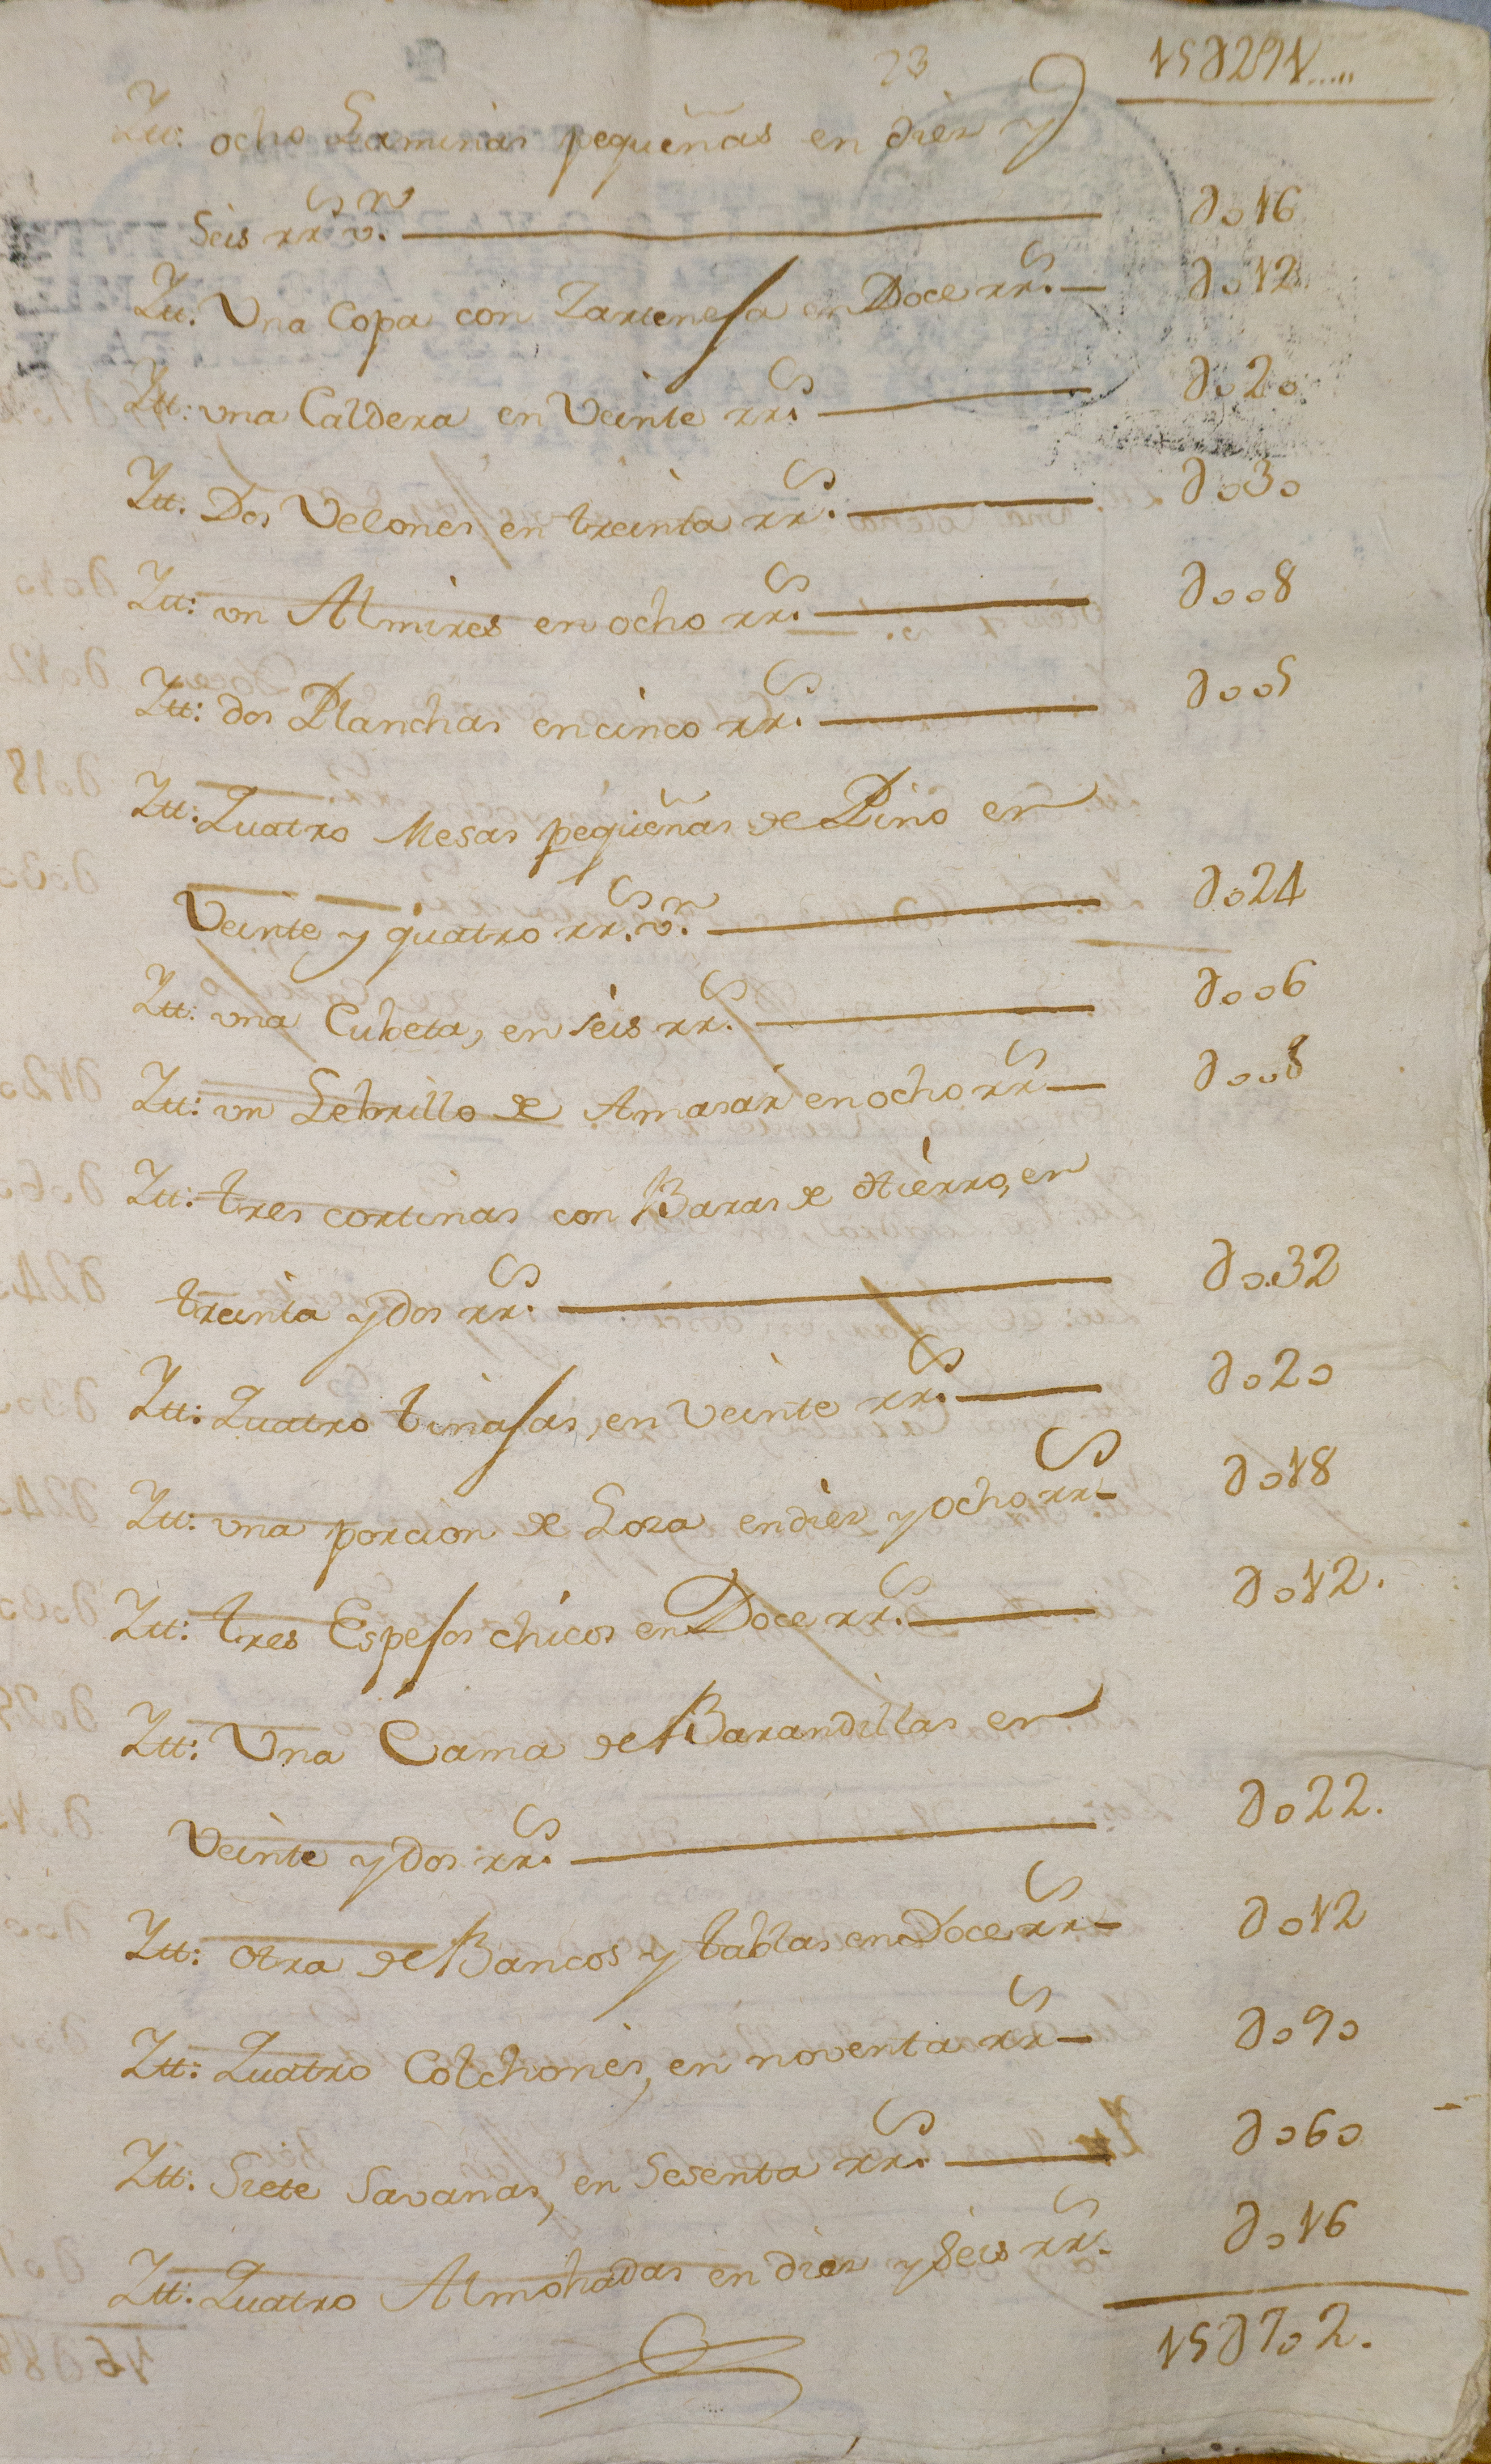 23
15∂291.....
Itt: ocho Laminas pequeñas en diez y
Seis rr.^s v.^n ——— ∂o16
Itt. Vna Copa con Tartenesa en Doce rr.^s — ∂o12
Itt: vna Caldera en Veinte rr.^s ——— ∂o2o
Itt. Dos Velones en treinta rr.^s ——— ∂o3o
Itt: vn Almires en ocho rr.^s ——— ∂oo8
Itt: dos Planchas en cinco rr.^s ——— ∂oo5
Itt: Quatro Mesas pequeñas de Pino en
Veinte y quatro rr.^s v.^n ——— ∂o24
Itt: vna Cubeta, en seis rr.^s ——— ∂oo6
Itt: vn Lebrillo de Amasar en ocho rr^s — ∂oo8
Itt: tres cortinas con Baras de Hierro, en
treinta y dos rr.^s ——— ∂o32
Itt: Quatro tinajas, en veinte rr.^s — ∂o2o
Itt: vna porcion de Loza en diez y ocho rr^s — ∂o18
Itt: tres Espejos chicos en Doce rr.^s — ∂o12.
Itt: Vna Cama de Barandillas en
Veinte y dos rr.^s ——— ∂o22.
Itt: otra de Bancos y tablas en Doce rr^s — ∂o12
Itt: Quatro Colchones, en noventa rr^s — ∂o9o
Itt: Siete Savanas, en Sesenta rr.^s — ∂o6o
Itt: Quatro Almohadas en diez y seis rr^s. ∂o16
15∂7o2.